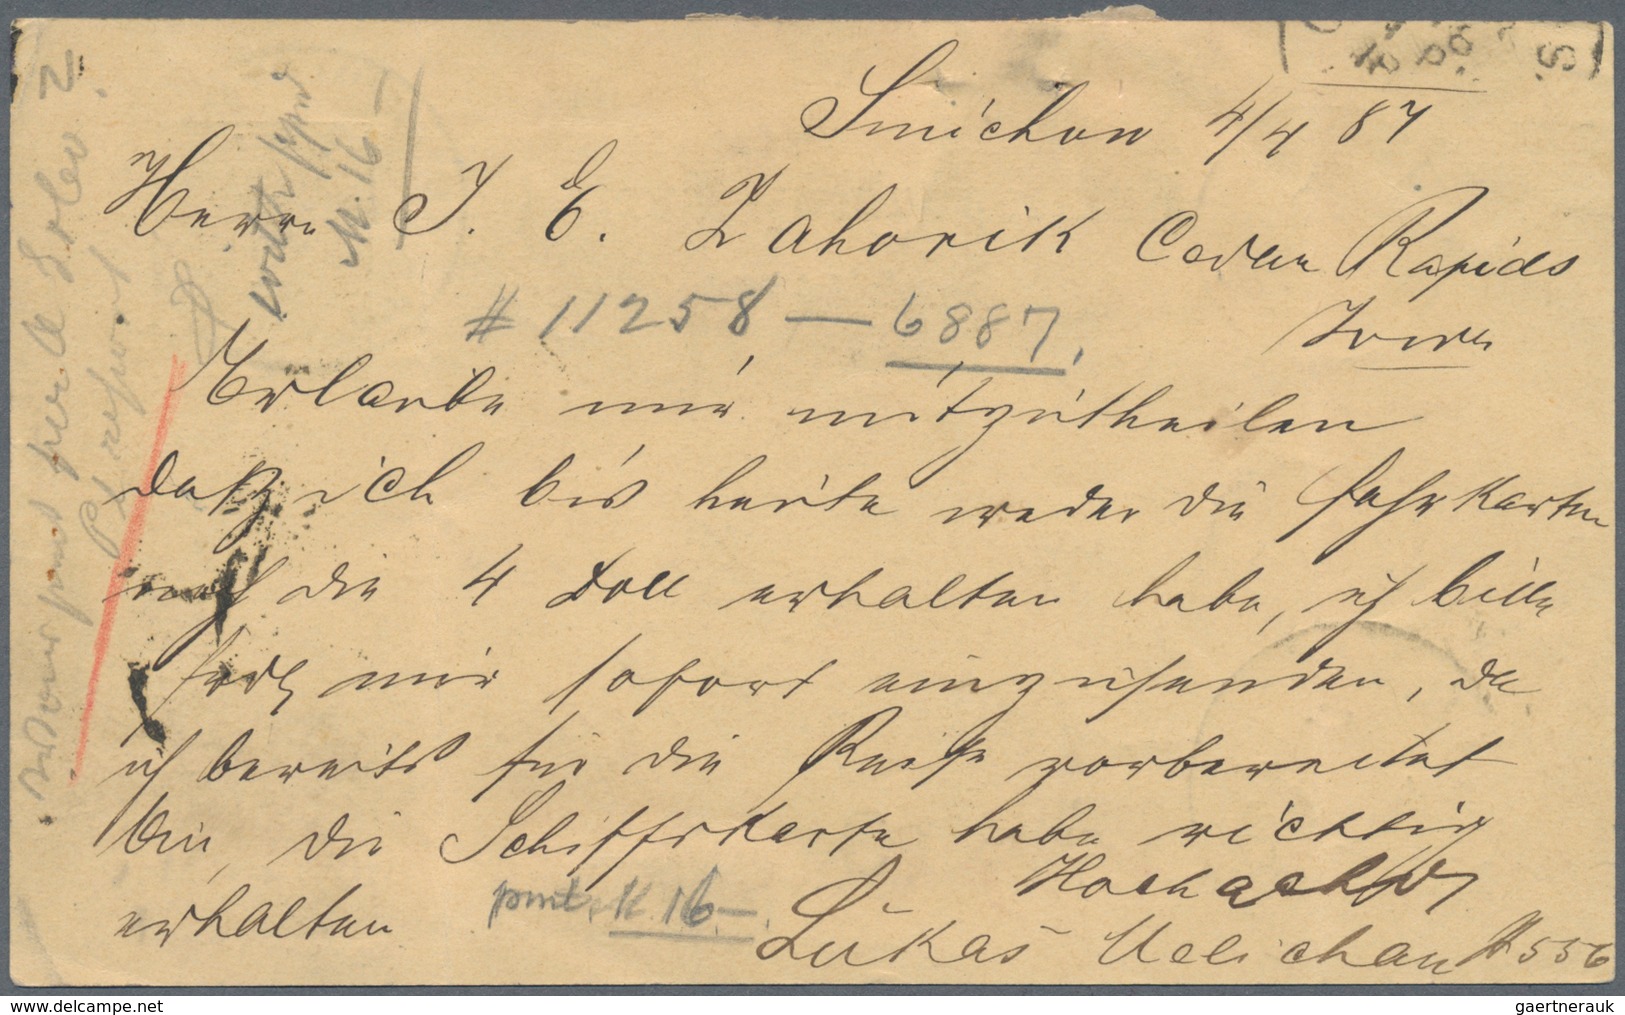 Smichow 4/4 87
Herrn J. E. Zahorik Cedar Rapids
Iowa
# 11258 — 6887.
Erlaube mir mitzutheilen
daß ich bis heute weder die Fahrkarten
noch die 4 Doll erhalten habe, ich bitte
mir sofort einzusenden, da
ich bereits für die Reise vorbereitet
bin, die Schiffskarte habe richtig
erhalten
Hochachtend
K. 16.—
Lukas # 556
M. 16 —
gaertnerauk